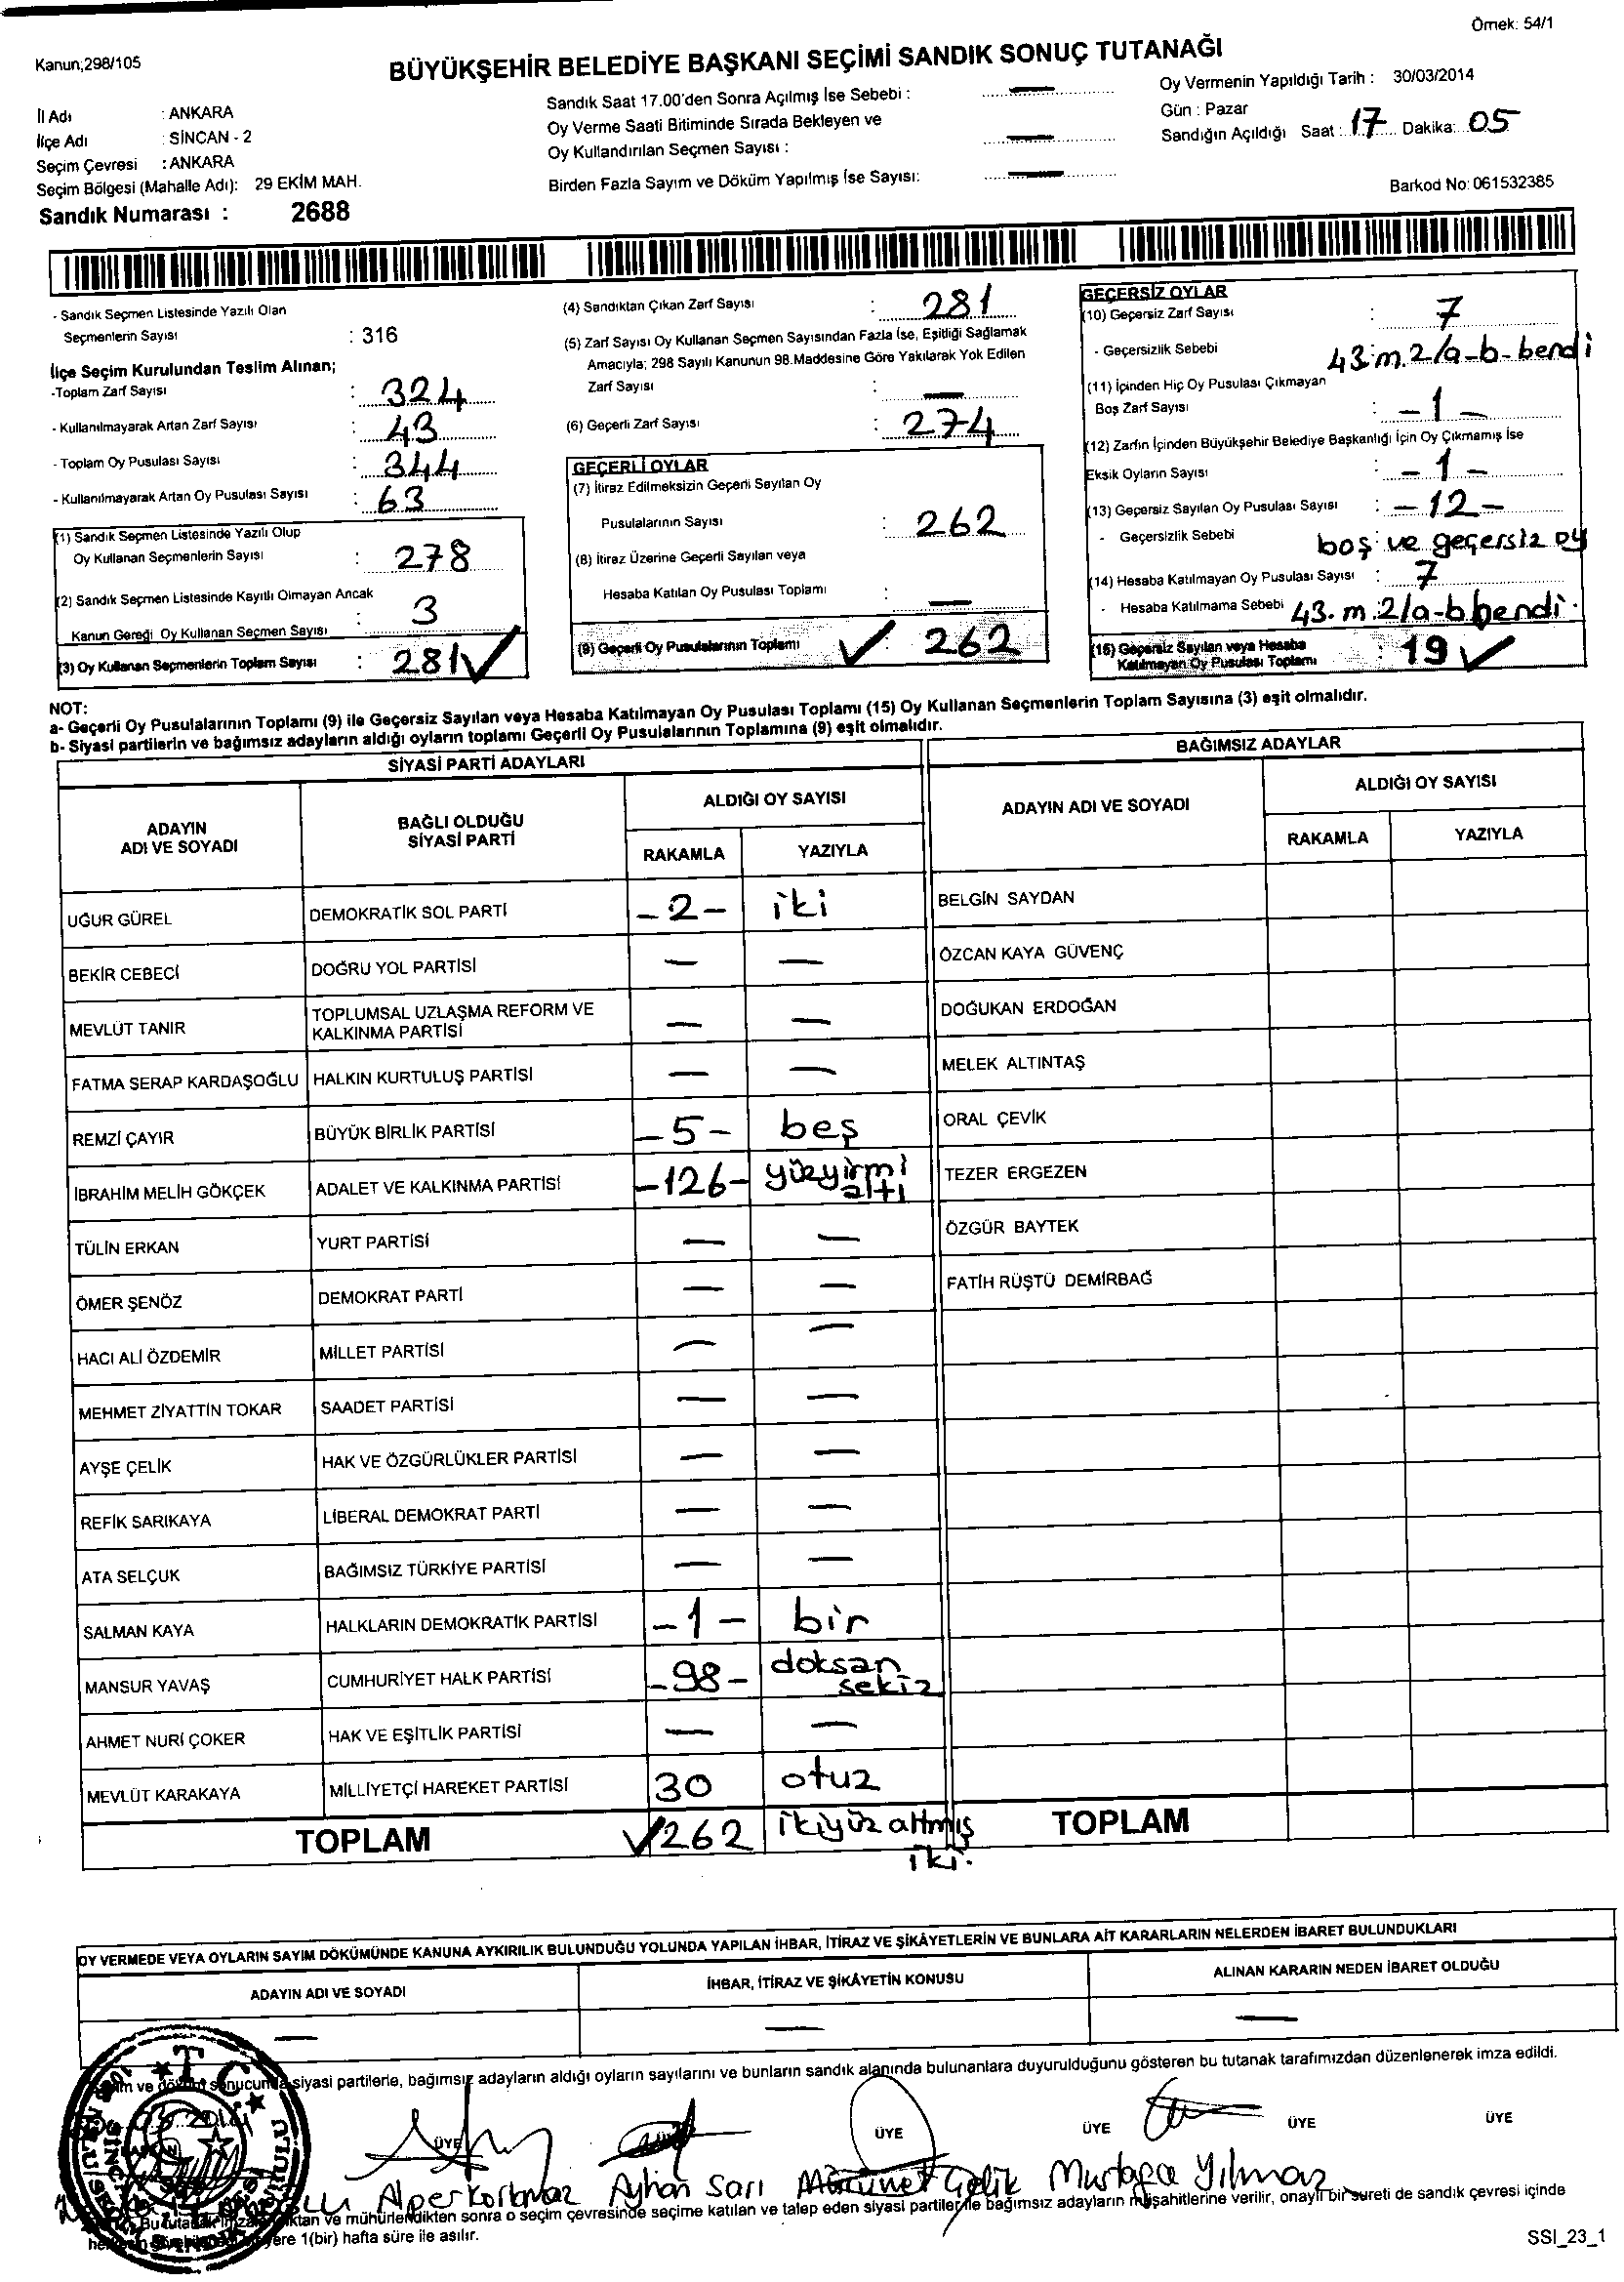 Örnek: 54/1
Kanun;298/105
BÜYÜKŞEHİR BELEDİYE BAŞKANI SEÇİMİ SANDIK SONUÇ TUTANAĞI
İl Adı : ANKARA
İlçe Adı : SİNCAN - 2
Seçim Çevresi : ANKARA
Seçim Bölgesi (Mahalle Adı): 29 EKİM MAH.
Sandık Numarası : 2688
Sandık Saat 17.00'den Sonra Açılmış İse Sebebi : —
Oy Verme Saati Bitiminde Sırada Bekleyen ve
Oy Kullandırılan Seçmen Sayısı : —
Birden Fazla Sayım ve Döküm Yapılmış İse Sayısı: —
Oy Vermenin Yapıldığı Tarih : 30/03/2014
Gün : Pazar
Sandığın Açıldığı Saat : 17 Dakika: 05
Barkod No: 061532385
- Sandık Seçmen Listesinde Yazılı Olan
Seçmenlerin Sayısı : 316
İlçe Seçim Kurulundan Teslim Alınan;
-Toplam Zarf Sayısı : 324
- Kullanılmayarak Artan Zarf Sayısı : 43
- Toplam Oy Pusulası Sayısı : 344
- Kullanılmayarak Artan Oy Pusulası Sayısı : 63
(1) Sandık Seçmen Listesinde Yazılı Olup
Oy Kullanan Seçmenlerin Sayısı : 278
(2) Sandık Seçmen Listesinde Kayıtlı Olmayan Ancak
Kanun Gereği Oy Kullanan Seçmen Sayısı : 3
(3) Oy Kullanan Seçmenlerin Toplam Sayısı : 281 ✓
(4) Sandıktan Çıkan Zarf Sayısı : 281
(5) Zarf Sayısı Oy Kullanan Seçmen Sayısından Fazla İse, Eşitliği Sağlamak
Amacıyla; 298 Sayılı Kanunun 98.Maddesine Göre Yakılarak Yok Edilen
Zarf Sayısı : —
(6) Geçerli Zarf Sayısı : 274
GEÇERLİ OYLAR
(7) İtiraz Edilmeksizin Geçerli Sayılan Oy
Pusulalarının Sayısı : 262
(8) İtiraz Üzerine Geçerli Sayılan veya
Hesaba Katılan Oy Pusulası Toplamı : —
(9) Geçerli Oy Pusulalarının Toplamı ✓ : 262
GEÇERSİZ OYLAR
(10) Geçersiz Zarf Sayısı : 7
- Geçersizlik Sebebi 43.m.2/a-b-bendi
(11) İçinden Hiç Oy Pusulası Çıkmayan
Boş Zarf Sayısı : -1-
(12) Zarfın İçinden Büyükşehir Belediye Başkanlığı İçin Oy Çıkmamış İse
Eksik Oyların Sayısı : -1-
(13) Geçersiz Sayılan Oy Pusulası Sayısı : -12-
- Geçersizlik Sebebi boş ve geçersiz oy
(14) Hesaba Katılmayan Oy Pusulası Sayısı : 7
- Hesaba Katılmama Sebebi 43.m.2/a-b bendi.
(15) Geçersiz Sayılan veya Hesaba
Katılmayan Oy Pusulası Toplamı : 19 ✓
NOT:
a- Geçerli Oy Pusulalarının Toplamı (9) ile Geçersiz Sayılan veya Hesaba Katılmayan Oy Pusulası Toplamı (15) Oy Kullanan Seçmenlerin Toplam Sayısına (3) eşit olmalıdır.
b- Siyasi partilerin ve bağımsız adayların aldığı oyların toplamı Geçerli Oy Pusulalarının Toplamına (9) eşit olmalıdır.
SİYASİ PARTİ ADAYLARI
ADAYIN ADI VE SOYADI BAĞLI OLDUĞU SİYASİ PARTİ ALDIĞI OY SAYISI
RAKAMLA YAZIYLA
UĞUR GÜREL DEMOKRATİK SOL PARTİ -2- iki
BEKİR CEBECİ DOĞRU YOL PARTİSİ — —
MEVLÜT TANIR TOPLUMSAL UZLAŞMA REFORM VE KALKINMA PARTİSİ — —
FATMA SERAP KARDAŞOĞLU HALKIN KURTULUŞ PARTİSİ — —
REMZİ ÇAYIR BÜYÜK BİRLİK PARTİSİ -5- beş
İBRAHİM MELİH GÖKÇEK ADALET VE KALKINMA PARTİSİ -126- yüzyirmi altı
TÜLİN ERKAN YURT PARTİSİ — —
ÖMER ŞENÖZ DEMOKRAT PARTİ — —
HACI ALİ ÖZDEMİR MİLLET PARTİSİ — —
MEHMET ZİYATTİN TOKAR SAADET PARTİSİ — —
AYŞE ÇELİK HAK VE ÖZGÜRLÜKLER PARTİSİ — —
REFİK SARIKAYA LİBERAL DEMOKRAT PARTİ — —
ATA SELÇUK BAĞIMSIZ TÜRKİYE PARTİSİ — —
SALMAN KAYA HALKLARIN DEMOKRATİK PARTİSİ -1- bir
MANSUR YAVAŞ CUMHURİYET HALK PARTİSİ -98- doksan sekiz
AHMET NURİ ÇOKER HAK VE EŞİTLİK PARTİSİ — —
MEVLÜT KARAKAYA MİLLİYETÇİ HAREKET PARTİSİ 30 otuz
TOPLAM ✓262 İkiyüz altmış iki.
BAĞIMSIZ ADAYLAR
ADAYIN ADI VE SOYADI ALDIĞI OY SAYISI
RAKAMLA YAZIYLA
BELGİN SAYDAN
ÖZCAN KAYA GÜVENÇ
DOĞUKAN ERDOĞAN
MELEK ALTINTAŞ
ORAL ÇEVİK
TEZER ERGEZEN
ÖZGÜR BAYTEK
FATİH RÜŞTÜ DEMİRBAĞ
TOPLAM
OY VERMEDE VEYA OYLARIN SAYIM DÖKÜMÜNDE KANUNA AYKIRILIK BULUNDUĞU YOLUNDA YAPILAN İHBAR, İTİRAZ VE ŞİKÂYETLERİN VE BUNLARA AİT KARARLARIN NELERDEN İBARET BULUNDUKLARI
ADAYIN ADI VE SOYADI İHBAR, İTİRAZ VE ŞİKÂYETİN KONUSU ALINAN KARARIN NEDEN İBARET OLDUĞU
— — —
ve döküm sonucunda siyasi partilerle, bağımsız adayların aldığı oyların sayılarını ve bunların sandık alanında bulunanlara duyurulduğunu gösteren bu tutanak tarafımızdan düzenlenerek imza edildi.
T.C.
ÜYE ÜYE ÜYE ÜYE ÜYE
Alper Korkmaz Ayhan Sarı Çelik Mustafa Yılmaz
Bu tutanak ve mühürlendikten sonra o seçim çevresinde seçime katılan ve talep eden siyasi partiler ile bağımsız adayların müşahitlerine verilir, onaylı bir sureti de sandık çevresi içinde
yere 1(bir) hafta süre ile asılır.
SSI_23_1